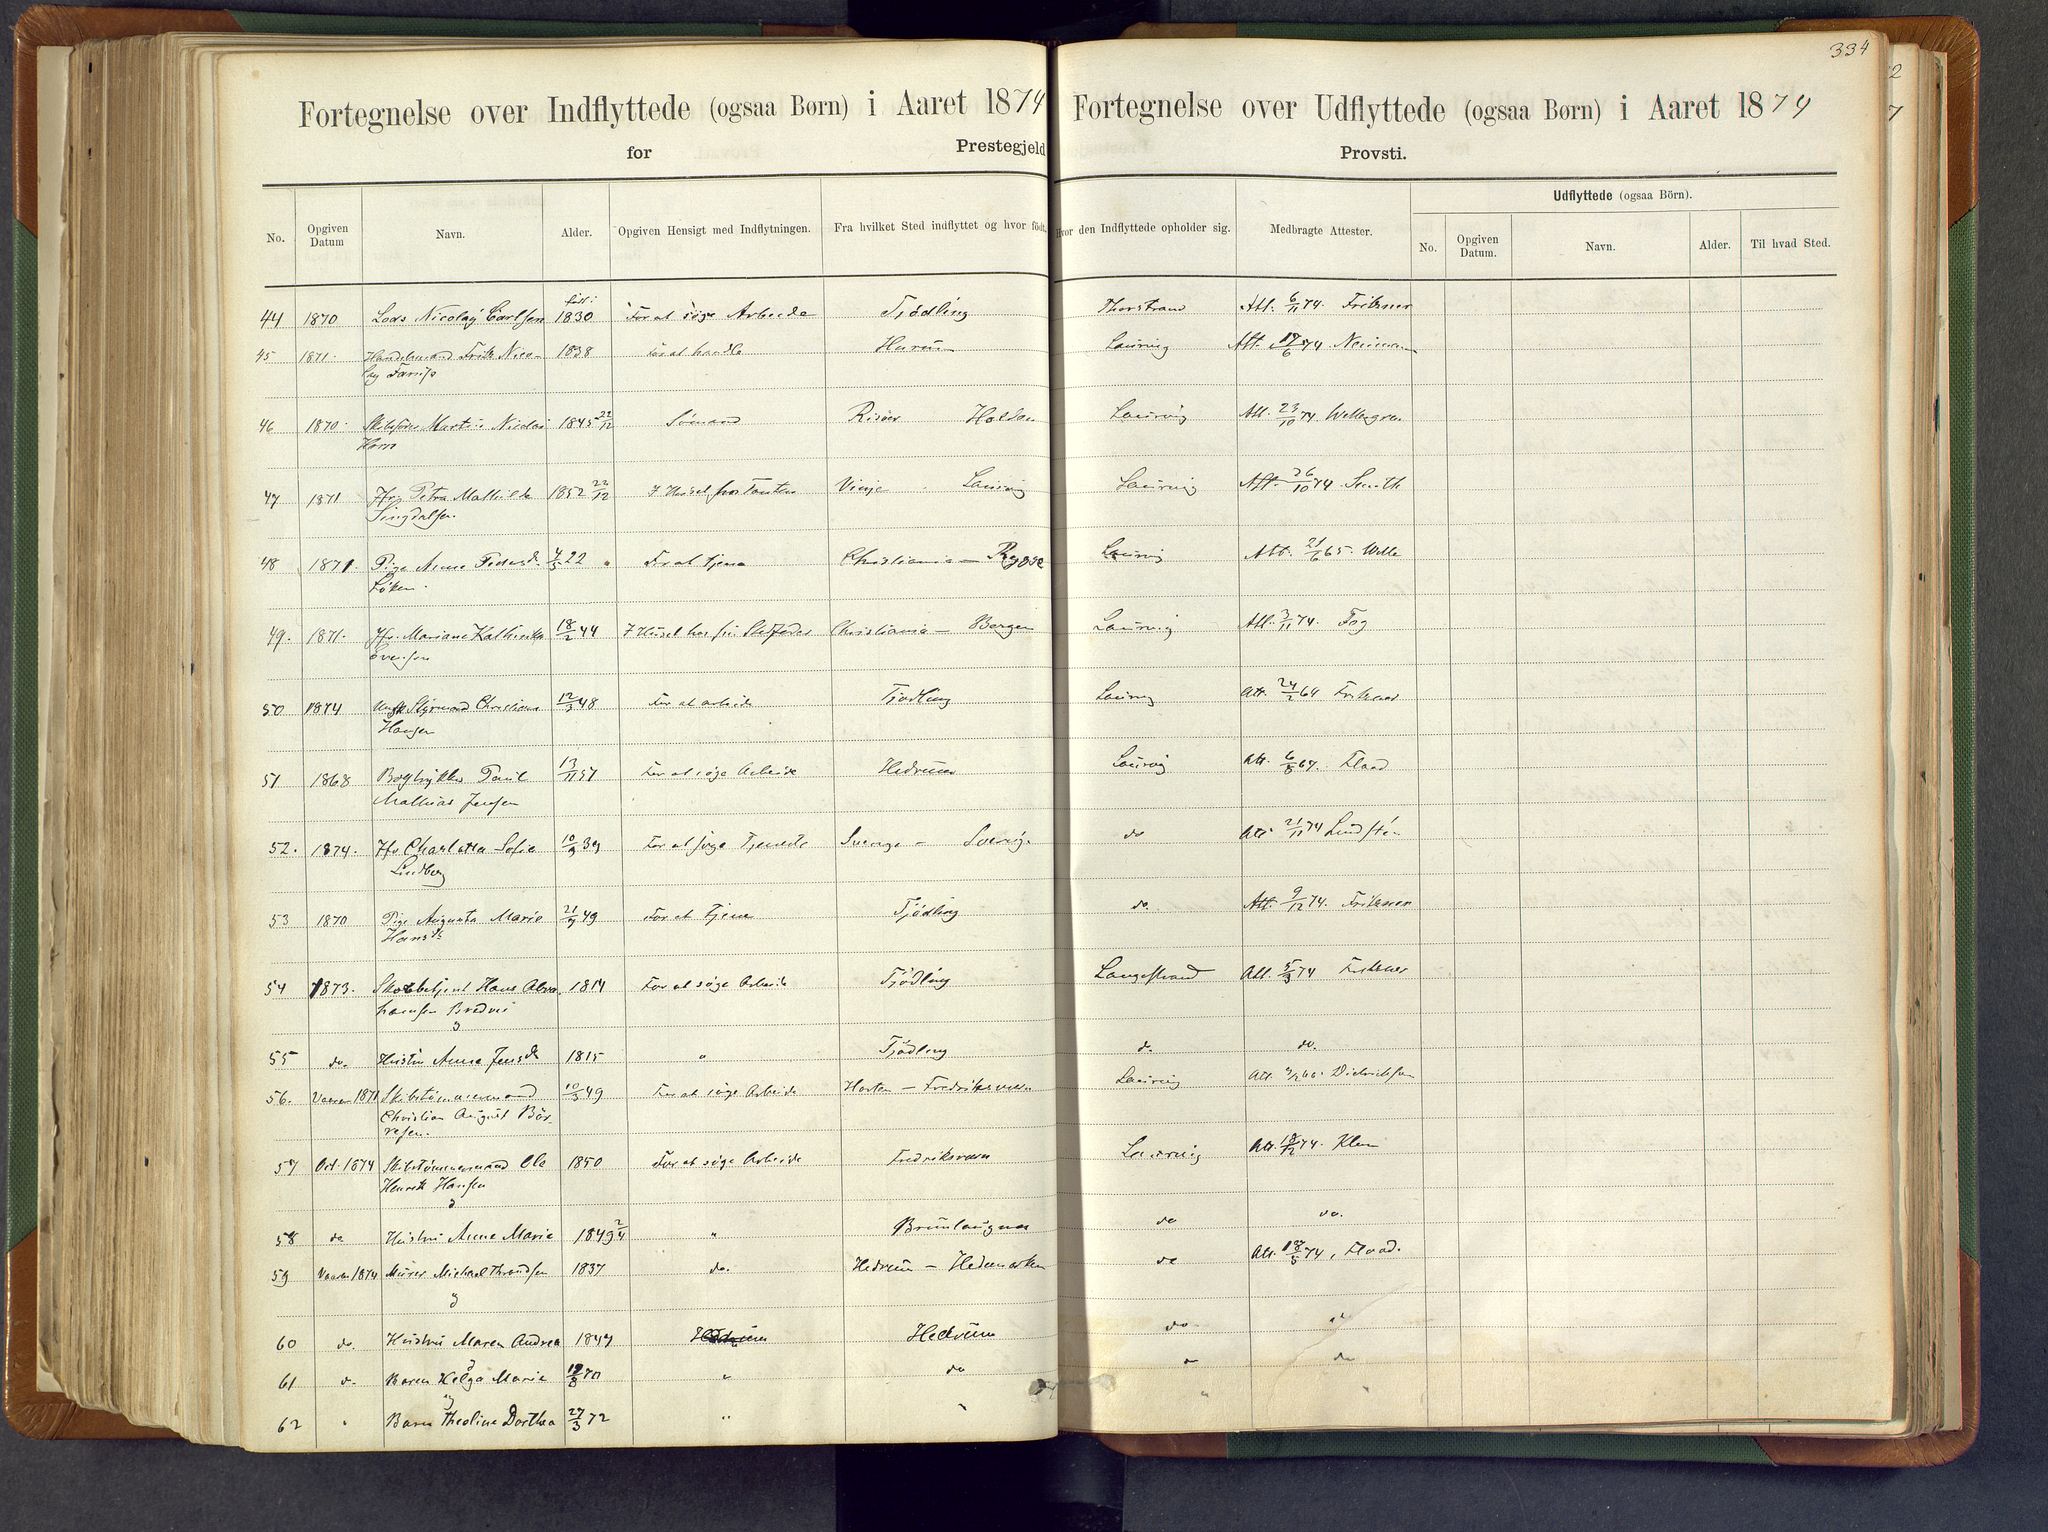 334
Fortegnelse over Indflyttede (ogsaa Børn) i Aaret 1874
for Prestegjeld
Fortegnelse over Udflyttede (ogsaa Børn) i Aaret 1874
Provsti.
Udflyttede (ogsaa Börn).
No. Opgiven Datum Navn. Alder. Opgiven Hensigt med Indflytningen. Fra hvilket Sted indflyttet og hvor født. Hvor den Indflyttede opholder sig. Medbragte Attester. No. Opgiven Datum. Navn. Alder. Til hvad Sted.
født:
44 1870 Lods Nicolay Carlsen 1830 For at søge Arbeide Tjødling Thorstrand Att. 6/11 74. Friksner
45 1871. Handelsmand Nico- 1838 For at handle Hurum Laurvig Att. 17/6 74
lay
46 1870. Martin Nicolai 1845 22/12 Sømand Risøer Halden Laurvig Att. 23/10 74 Wellergren
Horn
47 1871 Jfr. Petra Mathilde 1852 22/12 I Huset hos Tanten Vinje Laurvig Laurvig Att. 26/10 74 Smith
48 1871. Pige Anne Pedersd. 4/5 22 For at tjene Christiania — Rygge Laurvig Att. 21/6 65. Welle
Løken.
49. 1871. Jfr. Mariane Kathinka 18/2 44 I Huset hos sin Christiania — Bergen Laurvig Att. 3/11 74. Fog
Evensen
50 1874 Styrmand Christian 12/3 48 For at arbeide Tjødling Laurvig Att. 24/2 64 Friksner
Hansen
51 1868 Bogtrykker Paul 13/11 57 For at søge Arbeide Hedrum Laurvig Att. 6/8 67. Flaad
Mathias Jensen
52. 1874. Jfr Charlotta Sofie 10/9 39 For at søge Tjeneste Sverige — Sverig. do Att. 21/11 74
Lindberg
53 1870 Pige Augusta Marie 21/9 49 For at tjene Tjødling do. Att. 9/12 74. Friksner
Hansd.
54 1873. Hans Abra- 1814 For at søge Arbeide Tjødling Langestrand Att. 5/3 74 Friksner
hamsen
55 do. Hustru Anne Jensd 1815 " Tjødling d. do.
56. Vaaren 1871 Skibstømmermand 10/3 49 For at søge Arbeide Horten — Fredriksværn Laurvig Att. Diderichsen
Christian August Bör-
resen.
57 Oct. 1874 Skibstømmermand Ole 1850 For at søge Arbeide Fredriksværn Laurvig Att. 18/12 74. Klem
Henrik Hansen
58 do Hustru Anne Marie 1849 2/4 " Brunlaugnæs do do.
59 Vaaren 1874 Murer Michael Thrandsen 1837 do. Hedrum — Hedemarken do Att. 18/5 74, Flaad.
60 do. Hustru Maren Andrea 1847 Hedrum do "
61 d. Baren Helga Marie 12/8 70 " do " do
62 " Baren Theoline Dorthea 27/3 72 " " "